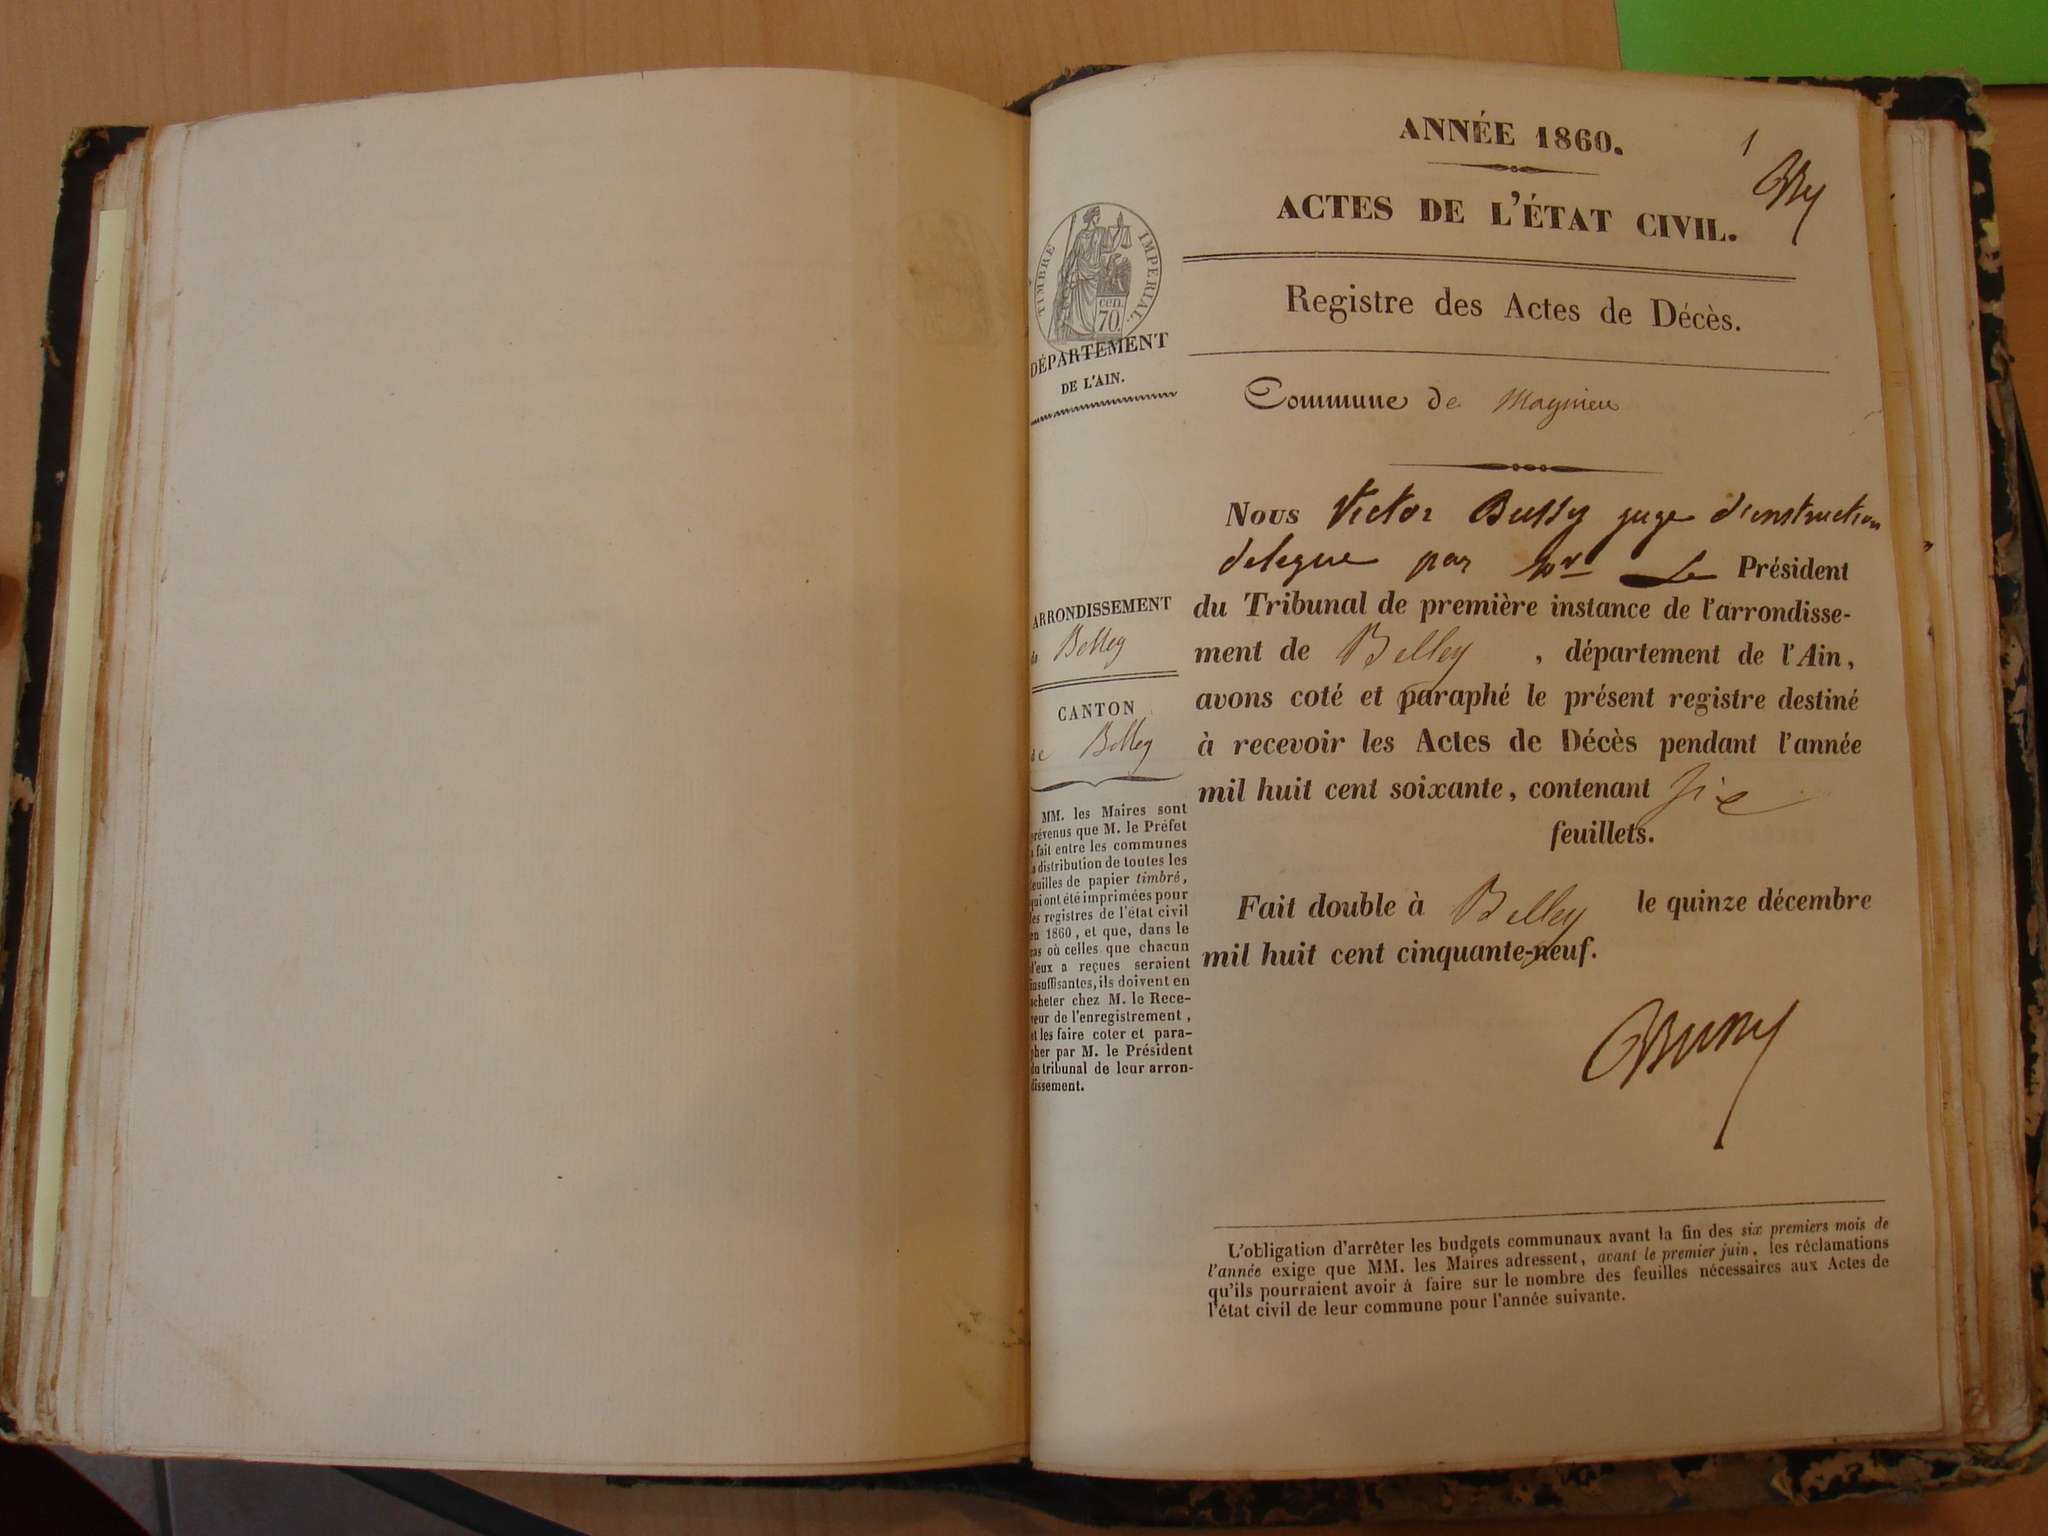 ANNÉE 1860.
1
ACTES DE L'ÉTAT CIVIL.
Registre des Actes de Décès.
Commune de Magnieu
TIMBRE IMPERIAL.
cen.
70.
DÉPARTEMENT
DE L'AIN.
ARRONDISSEMENT
de Belley
CANTON
de Belley
MM. les Maires sont
prévenus que M. le Préfet
a fait entre les communes
la distribution de toutes les
feuilles de papier timbré,
qui ont été imprimées pour
les registres de l'état civil
en 1860, et que, dans le
cas où celles que chacun
d'eux a reçues seraient
insuffisantes, ils doivent en
acheter chez M. le Rece-
veur de l'enregistrement,
et les faire coter et para-
pher par M. le Président
du tribunal de leur arron-
dissement.
Nous Victor Bussy juge d'instruction
delegue par Mr Le Président
du Tribunal de première instance de l'arrondisse-
ment de Belley, département de l'Ain,
avons coté et paraphé le présent registre destiné
à recevoir les Actes de Décès pendant l'année
mil huit cent soixante, contenant six
feuillets.
Fait double à Belley le quinze décembre
mil huit cent cinquante-neuf.
L'obligation d'arrêter les budgets communaux avant la fin des six premiers mois de
l'année exige que MM. les Maires adressent, avant le premier juin, les réclamations
qu'ils pourraient avoir à faire sur le nombre des feuilles nécessaires aux Actes de
l'état civil de leur commune pour l'année suivante.